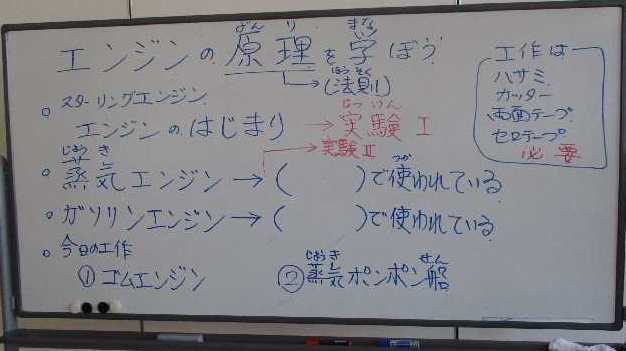 げんり まな
エンジンの原理を学ぼう
ほうそく
(法則)
スターリングエンジン
じっけん
エンジンのはじまり→実験Ⅰ
→実験Ⅱ
じょうき つか
蒸気エンジン→( )で使われている
ガソリンエンジン→( )で使われている
今日の工作
①ゴムエンジン
じょうき せん
②蒸気ポンポン船
工作は
ハサミ
カッター
両面テープ
セロテープ
必要